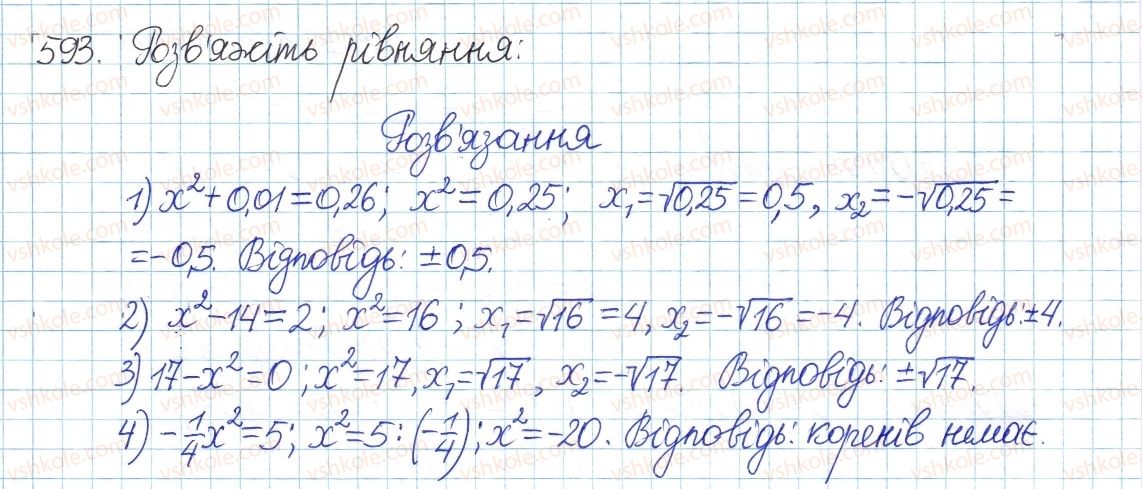 593. Розв'яжіть рівняння:
Розв'язання
1) x² + 0,01 = 0,26; x² = 0,25; x₁ = √0,25 = 0,5, x₂ = -√0,25 =
= -0,5. Відповідь: ±0,5.
2) x² - 14 = 2; x² = 16; x₁ = √16 = 4, x₂ = -√16 = -4. Відповідь: ±4.
3) 17 - x² = 0; x² = 17, x₁ = √17, x₂ = -√17. Відповідь: ±√17.
4) -1/4 x² = 5; x² = 5 : (-1/4); x² = -20. Відповідь: коренів немає.